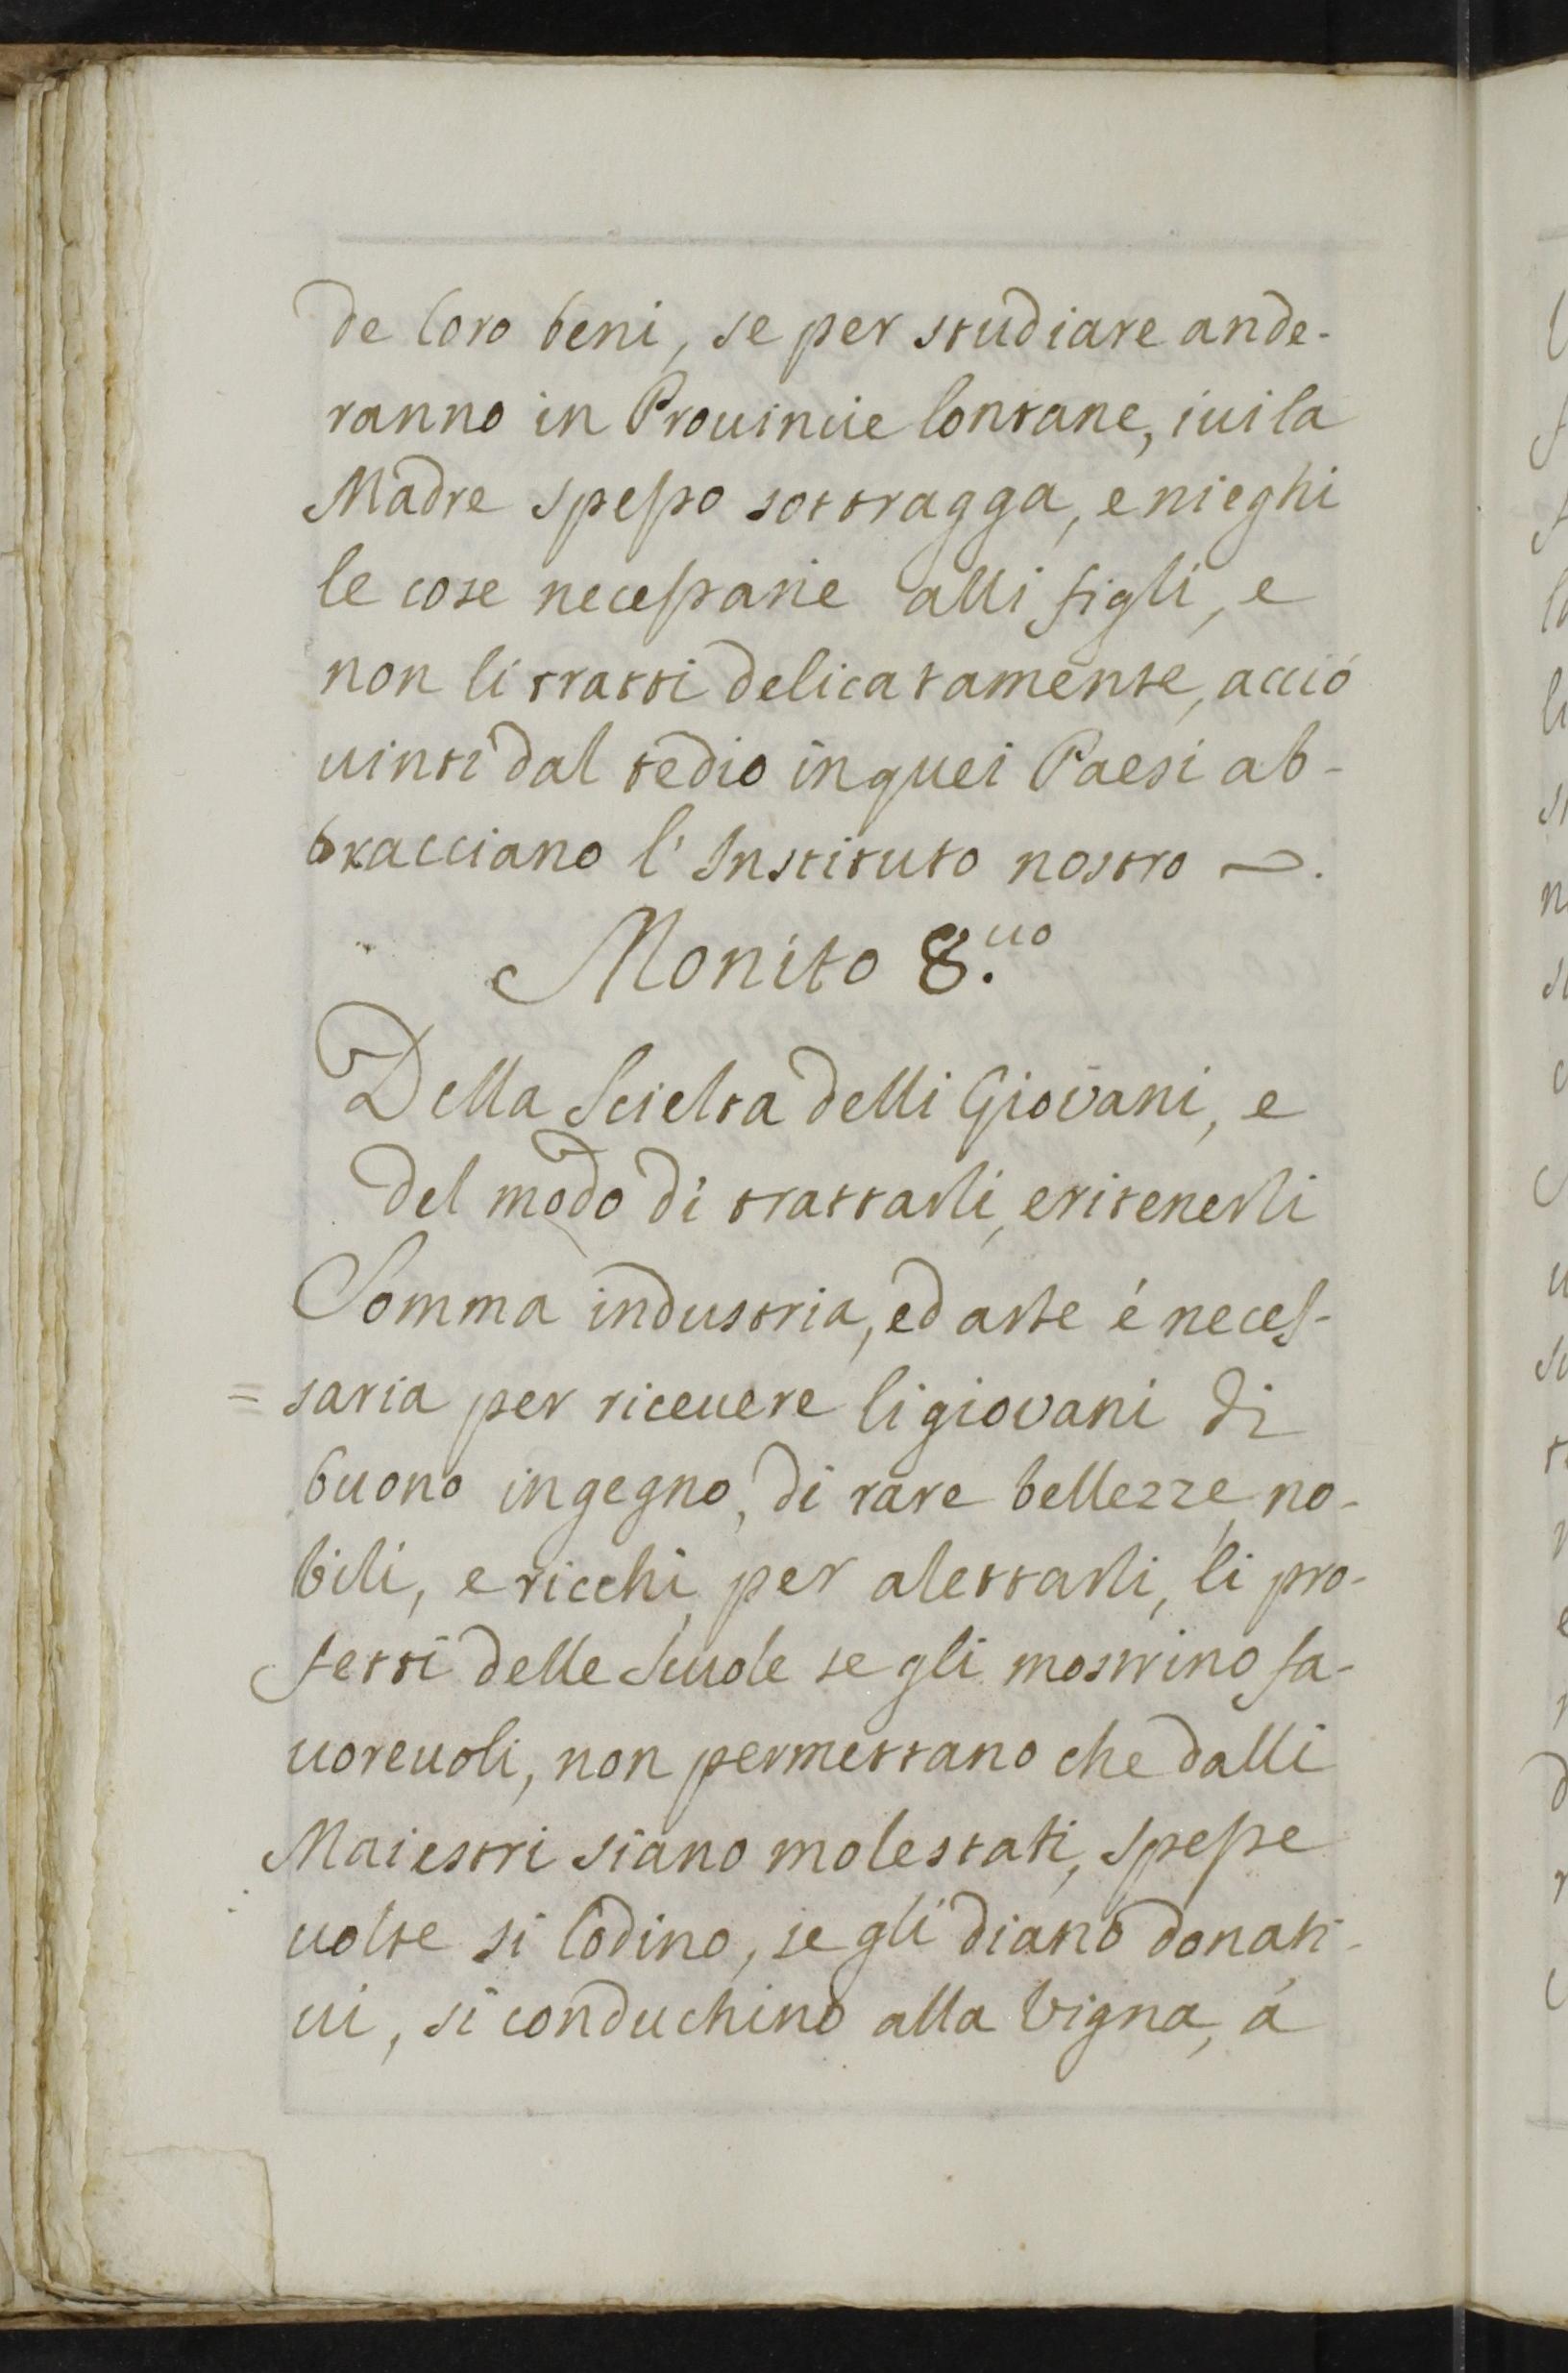 de loro beni, se per studiare ande-
ranno in Prouincie lontane, iui la
Madre spesso sottragga, e nieghi
le cose necessarie alli figli, e
non li tratti delicatamente, acció
uinti dal tedio in quei Paesi ab-
bracciano l'Instituto nostro ~.
Monito 8.uo
Della Scielta delli Giovani, e
del modo di trattarli, e ritenerli
Somma industria, ed arte é neces-
= saria per riceuere li giovani di
buono ingegno, di rare bellezze, no-
bili, e ricchi, per alettarli, li pre-
fetti delle Scuole se gli mostrino fa-
uoreuoli, non permettano che dalli
Maiestri siano molestati, spesse
uolte si lodino, se gli diano donati-
ui, si conduchino alla Vigna, á